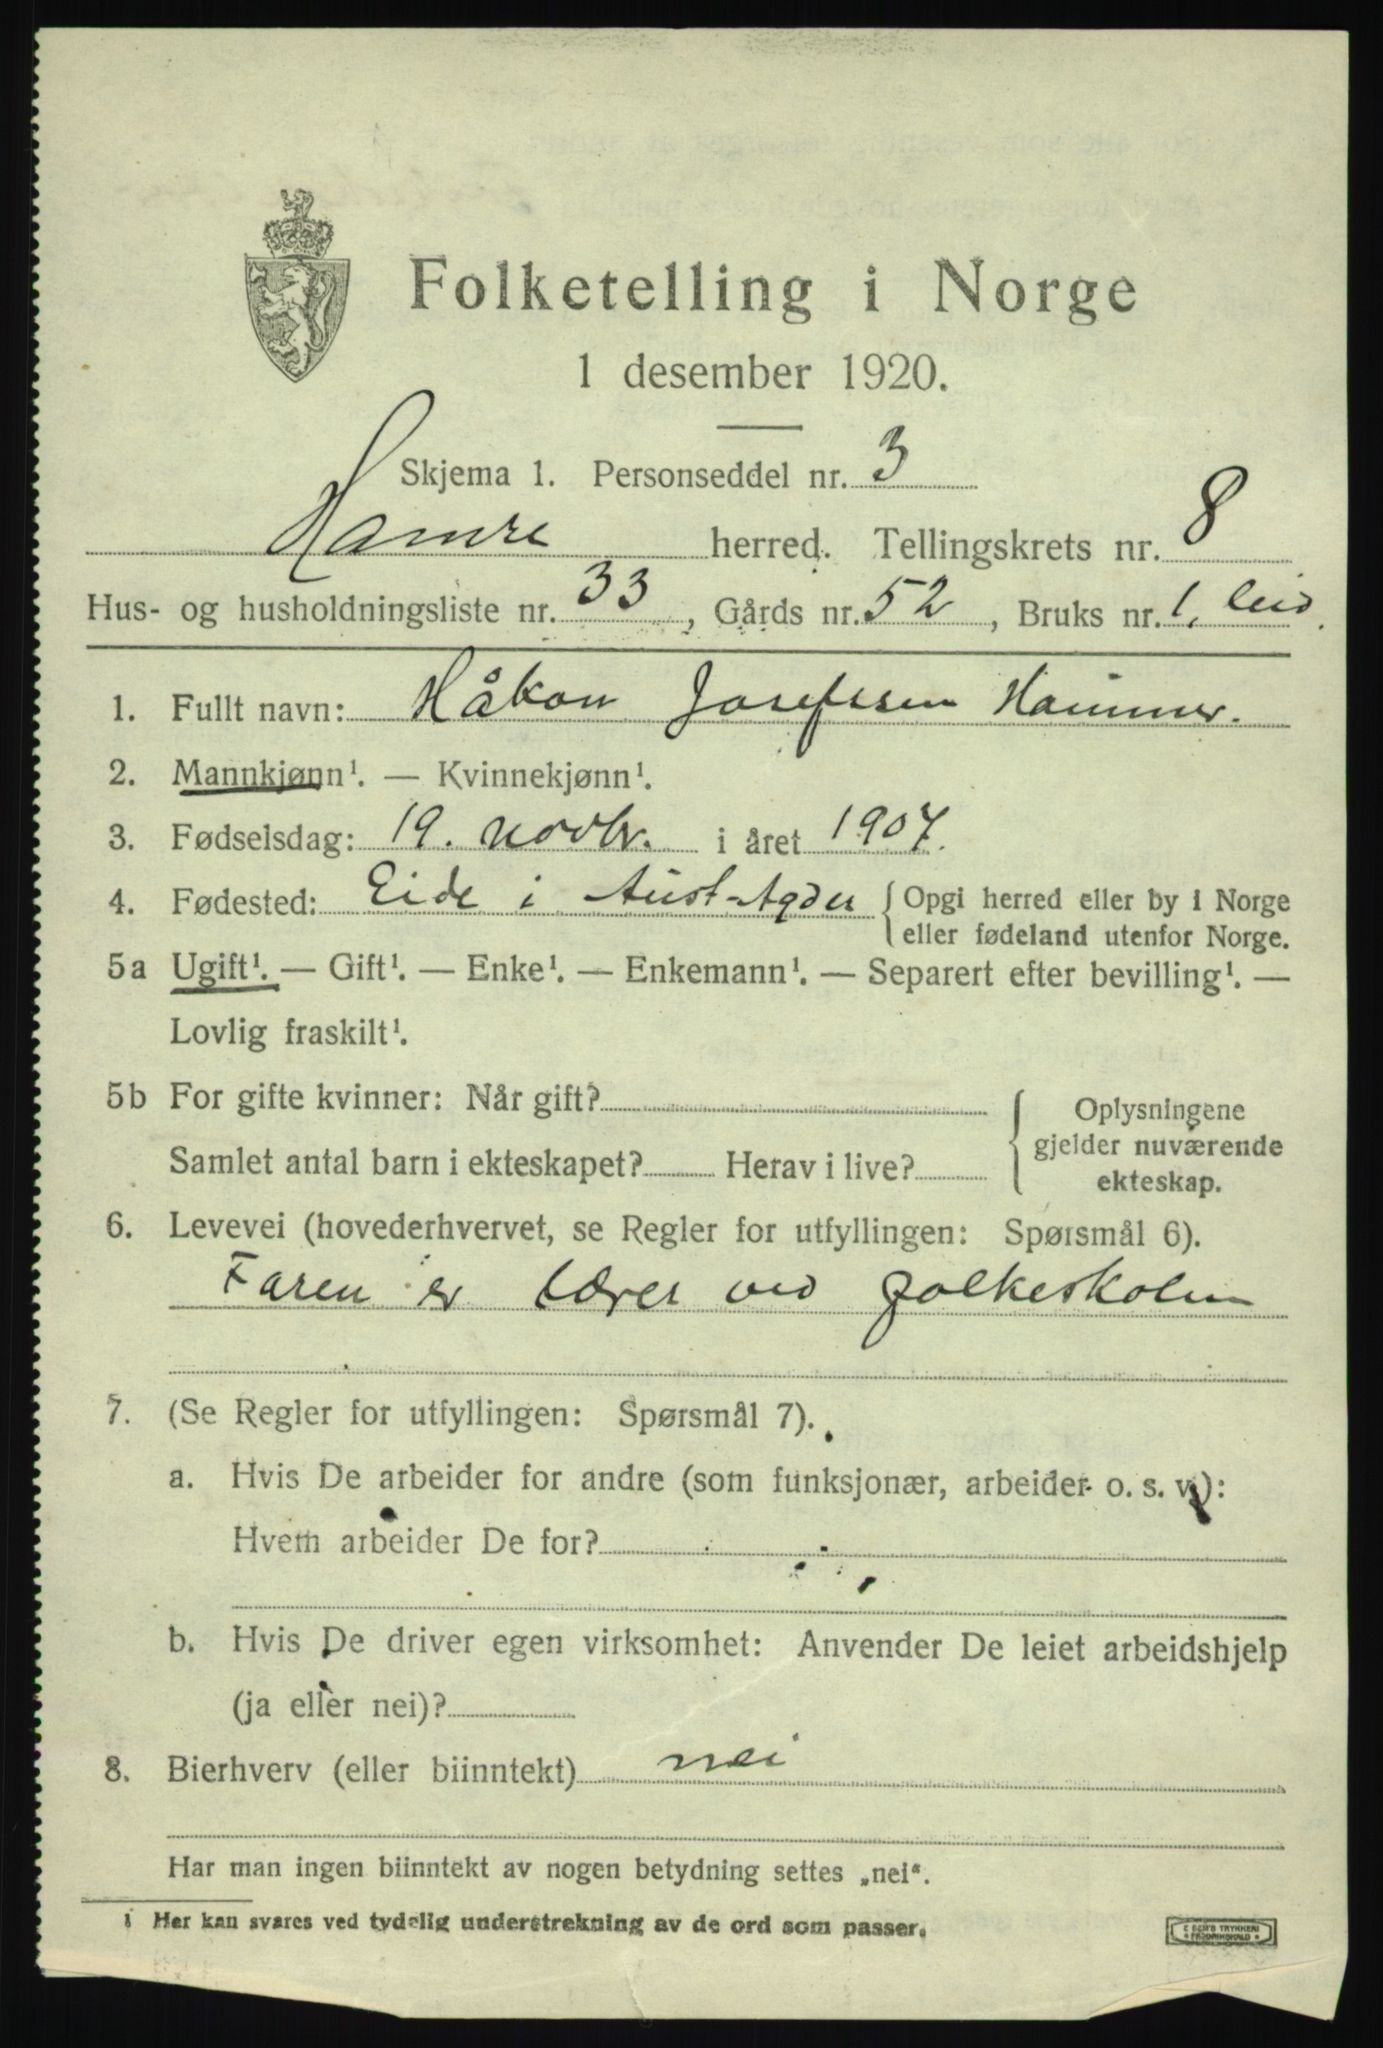 Folketelling i Norge
1 desember 1920.
Skjema 1. Personseddel nr. 3
Hamre herred. Tellingskrets nr. 8
Hus- og husholdningsliste nr. 33, Gårds nr. 52, Bruks nr. 1,
1. Fullt navn: Håkon Josefssen Hammer.
2. Mannkjønn¹. — Kvinnekjønn¹.
3. Fødselsdag: 19. novbr. i året 1907.
4. Fødested: Eide i Aust-Agder { Opgi herred eller by i Norge
eller fødeland utenfor Norge.
5a Ugift¹. — Gift¹. — Enke¹. — Enkemann¹. — Separert efter bevilling¹. —
Lovlig fraskilt¹.
5b For gifte kvinner: Når gift? { Oplysningene
gjelder nuværende
Samlet antal barn i ekteskapet? Herav i live? ekteskap.
6. Levevei (hovederhvervet, se Regler for utfyllingen: Spørsmål 6).
Faren er lærer ved folkeskolen
7. (Se Regler for utfyllingen: Spørsmål 7).
a. Hvis De arbeider for andre (som funksjonær, arbeider o. s. v.):
Hvem arbeider De for?
b. Hvis De driver egen virksomhet: Anvender De leiet arbeidshjelp
(ja eller nei)?
8. Bierhverv (eller biinntekt) nei
Har man ingen biinntekt av nogen betydning settes „nei“.
1 Her kan svares ved tydelig understrekning av de ord som passer.